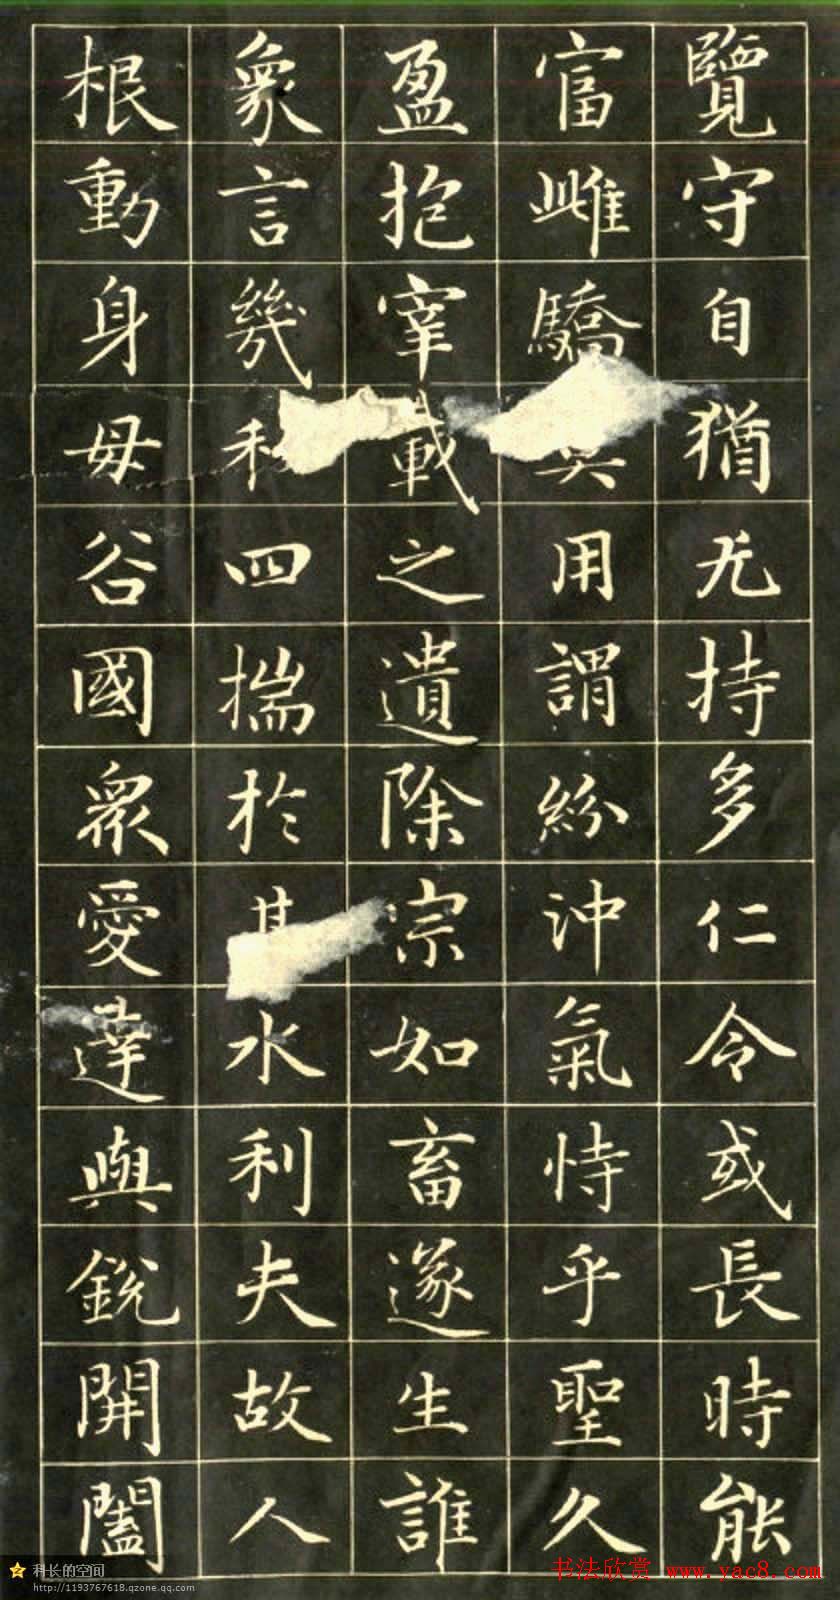 覽守自猶尤持多仁令或長時能
富雌驕用謂紛沖氣恃乎聖久
盈抱宰載之遺除宗如畜遂生誰
象言幾四揣於水利夫故人
根動身母谷國眾愛達與銳開闔
科长的空间
http://1193767618.qzone.qq.com
书法欣赏 www.yac8.com